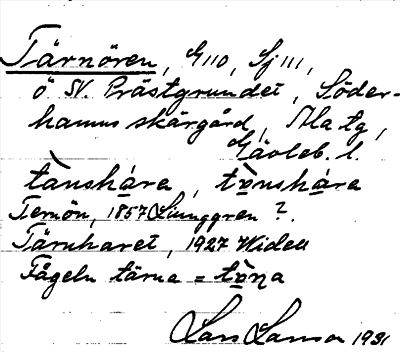 Tärnören, G110, Sj111,
ö SV. Prästgrundet, Söder-
hamns skärgård, Ala tg,
Gävleb. l.
tànshára, tv̀nshára
Ternön, 1857 Ljunggren ?.
Tärnharet, 1927 Widell
Fågeln tärna = tv̀na
Lars 1931